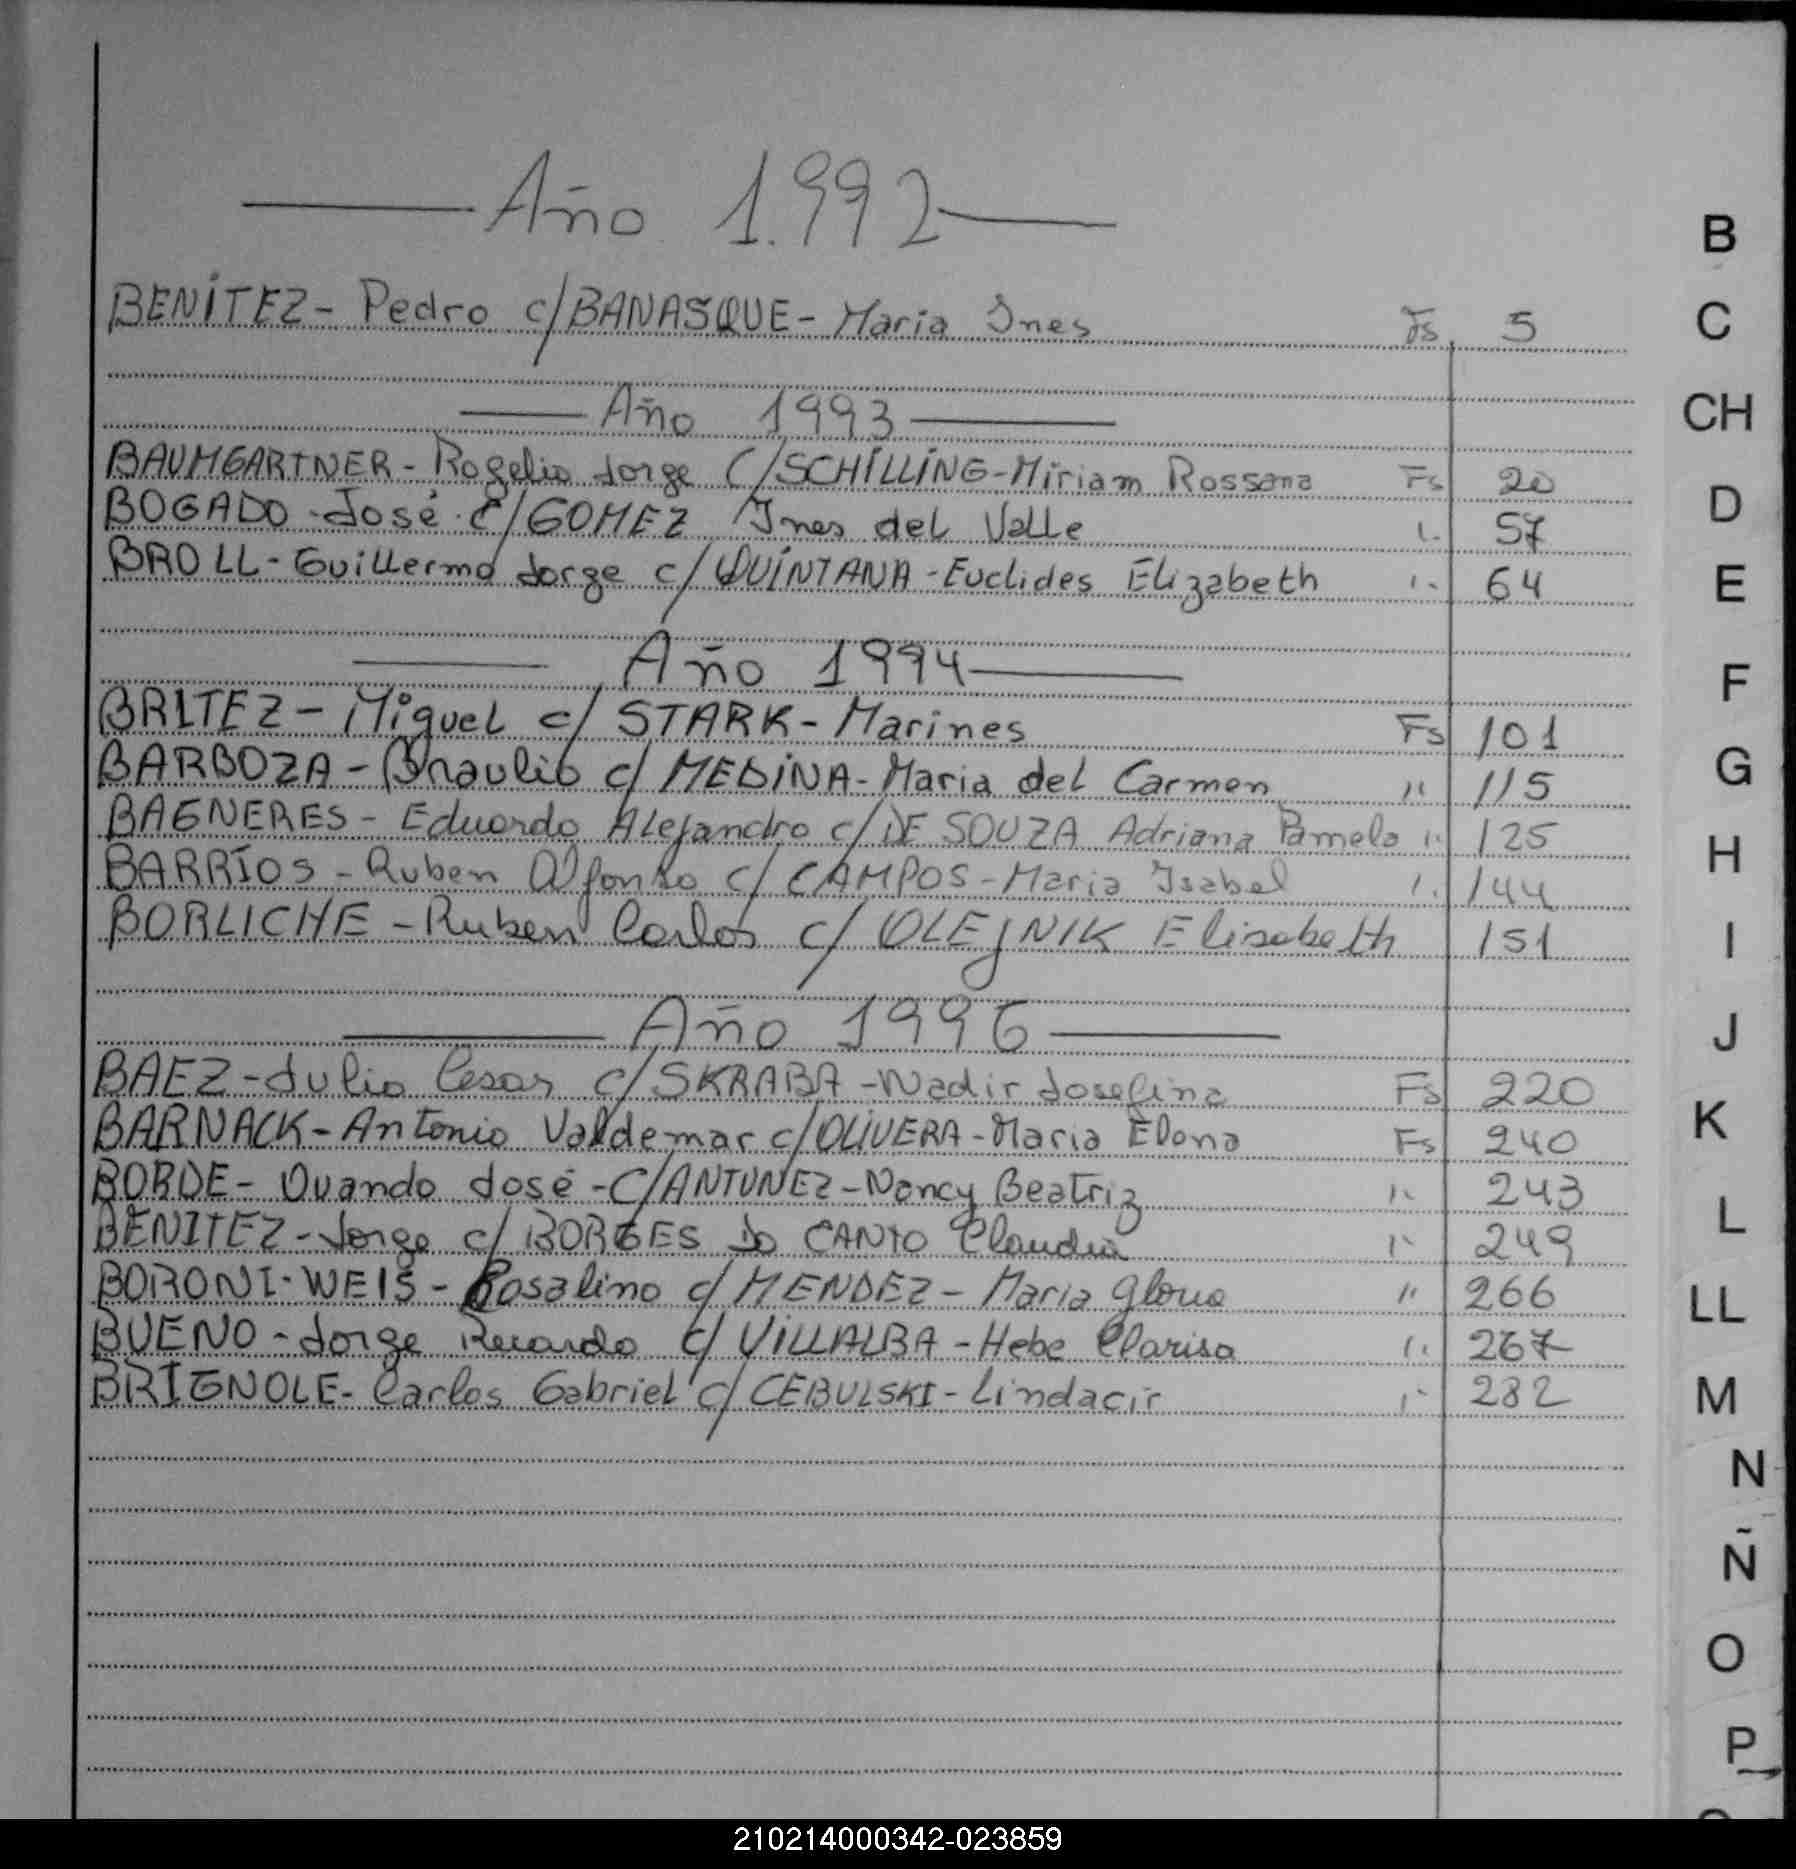 Año 1.992
BENÍTEZ - Pedro c/ BANASQUE - Maria Ines Fs 5
Año 1993
BAUMGARTNER - Rogelio Jorge C/ SCHILLING - Miriam Rossana Fs 20
BOGADO - José C/ GOMEZ Ines del Valle " 57
BROLL - Guillermo Jorge c/ QUINTANA - Euclides Elizabeth " 64
Año 1994
BRITEZ - Miguel c/ STARK - Marines Fs 101
BARBOZA - Braulio c/ MEDINA - Maria del Carmen " 115
BAGNERES - Eduardo Alejandro c/ DE SOUZA Adriana Pamela " 125
BARRÍOS - Ruben Alfonso c/ CAMPOS - Maria Isabel " 144
BORLICHE - Ruben Carlos c/ OLEJNIK Elisabeth 151
Año 1996
BAEZ - Julio Cesar c/ SKRABA - Nadir Josefina Fs 220
BARNACK - Antonio Valdemar c/ OLIVERA - Maria Elena Fs 240
BORDE - Ovando José - C/ ANTUNEZ - Nancy Beatriz " 243
BENITEZ - Jorge c/ BORGES DO CANTO Claudia " 249
BORONI - WEIS - Rosalino c/ MENDEZ - Maria Gloria " 266
BUENO - Jorge Ricardo c/ VILLALBA - Hebe Clarisa " 267
BRIGNOLE - Carlos Gabriel c/ CEBULSKI - Lindacir " 282
B
C
CH
D
E
F
G
H
I
J
K
L
LL
M
N
Ñ
O
P
210214000342-023859